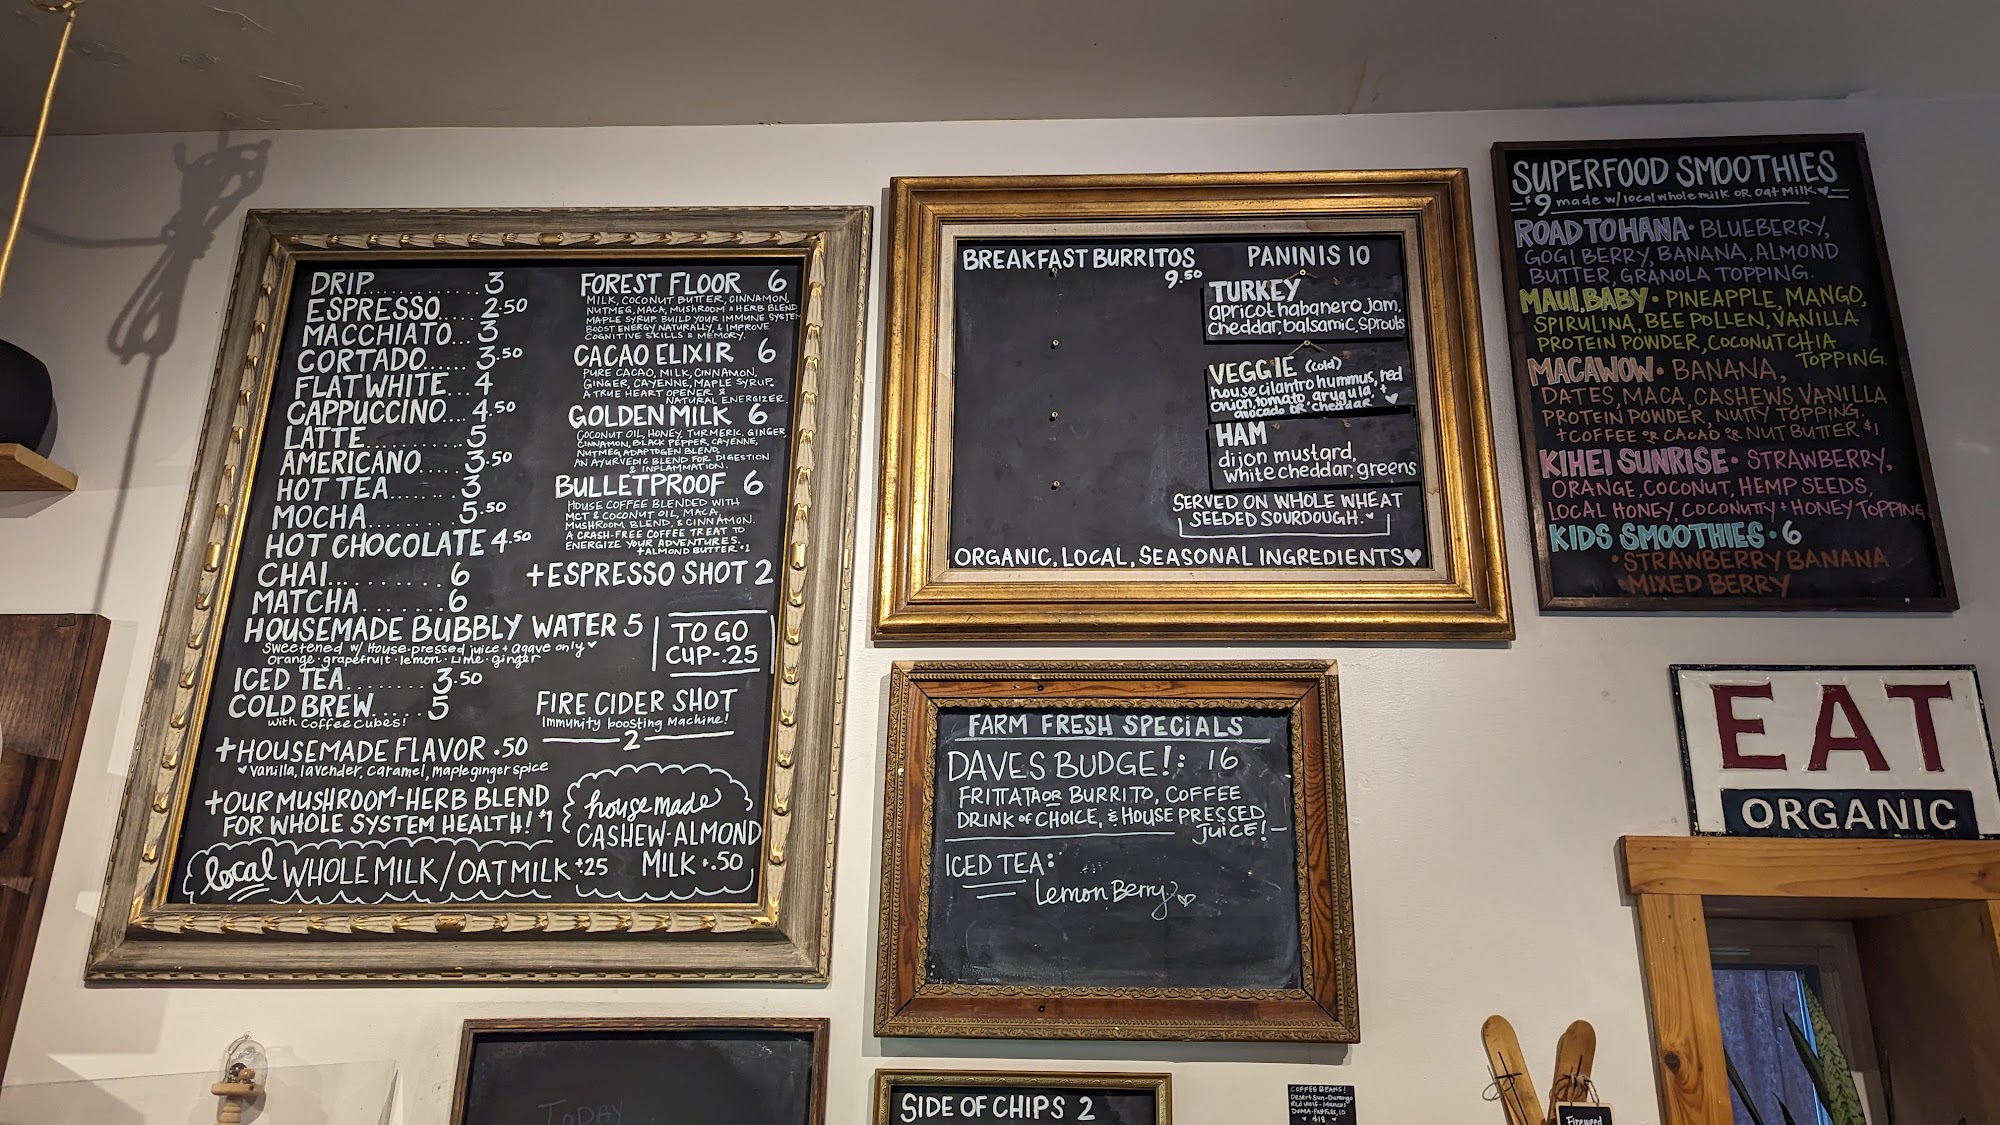 DRIP.............3
ESPRESSO.....2.50
MACCHIATO...3
CORTADO......3.50
FLAT WHITE...4
CAPPUCCINO...4.50
LATTE............5
AMERICANO.....3.50
HOT TEA........3
MOCHA..........5.50
HOT CHOCOLATE 4.50
CHAI............6
MATCHA........6
HOUSEMADE BUBBLY WATER 5
Sweetened w/ House-pressed juice + agave only ♥
Orange · grapefruit · lemon · Lime · ginger
ICED TEA........3.50
COLD BREW.....5
with Coffee Cubes!
+HOUSEMADE FLAVOR .50
♥ vanilla, lavender, caramel, maple ginger spice
+OUR MUSHROOM-HERB BLEND
FOR WHOLE SYSTEM HEALTH! $1
local WHOLE MILK / OAT MILK +.25
FOREST FLOOR 6
MILK, COCONUT BUTTER, CINNAMON,
NUTMEG, MACA, MUSHROOM & HERB BLEND
MAPLE SYRUP. BUILD YOUR IMMUNE SYSTEM
BOOST ENERGY NATURALLY, & IMPROVE
COGNITIVE SKILLS & MEMORY.
CACAO ELIXIR 6
PURE CACAO, MILK, CINNAMON,
GINGER, CAYENNE, MAPLE SYRUP.
A TRUE HEART OPENER &
NATURAL ENERGIZER.
GOLDEN MILK 6
COCONUT OIL, HONEY, TURMERIC, GINGER,
CINNAMON, BLACK PEPPER, CAYENNE,
NUTMEG, ADAPTOGEN BLEND.
AN AYURVEDIC BLEND FOR DIGESTION
& INFLAMMATION.
BULLETPROOF 6
HOUSE COFFEE BLENDED WITH
MCT & COCONUT OIL, MACA,
MUSHROOM BLEND, & CINNAMON.
A CRASH-FREE COFFEE TREAT TO
ENERGIZE YOUR ADVENTURES.
+ALMOND BUTTER $1
+ESPRESSO SHOT 2
TO GO
CUP-.25
FIRE CIDER SHOT
Immunity boosting Machine!
2
housemade
CASHEW-ALMOND
MILK +.50
BREAKFAST BURRITOS
9.50
PANINIS 10
TURKEY
apricot habanero jam,
cheddar, balsamic, sprouts
VEGGIE (cold)
house cilantro hummus, red
onion, tomato, arugula, +
avocado OR cheddar ♥
HAM
dijon mustard,
white cheddar, greens
SERVED ON WHOLE WHEAT
SEEDED SOURDOUGH. ♥
ORGANIC, LOCAL, SEASONAL INGREDIENTS ♥
SUPERFOOD SMOOTHIES
$9 made w/ local whole milk OR oat milk ♥
ROAD TO HANA · BLUEBERRY,
GOGI BERRY, BANANA, ALMOND
BUTTER, GRANOLA TOPPING.
MAUI BABY · PINEAPPLE, MANGO,
SPIRULINA, BEE POLLEN, VANILLA
PROTEIN POWDER, COCONUT CHIA
TOPPING.
MACAWOW · BANANA,
DATES, MACA, CASHEWS, VANILLA
PROTEIN POWDER, NUTTY TOPPING.
+ COFFEE OR CACAO OR NUT BUTTER $1
KIHEI SUNRISE · STRAWBERRY,
ORANGE, COCONUT, HEMP SEEDS,
LOCAL HONEY, COCONUTTY + HONEY TOPPING
KIDS SMOOTHIES · 6
· STRAWBERRY BANANA
· MIXED BERRY
FARM FRESH SPECIALS
DAVES BUDGE!: 16
FRITTATA OR BURRITO, COFFEE
DRINK OF CHOICE, & HOUSE PRESSED
JUICE!
ICED TEA:
Lemon Berry ♥
EAT
ORGANIC
TODAY
SIDE OF CHIPS 2
COFFEE BEANS!
Desert Sun-Domingo
Red Wolf-
$18
Fireweed